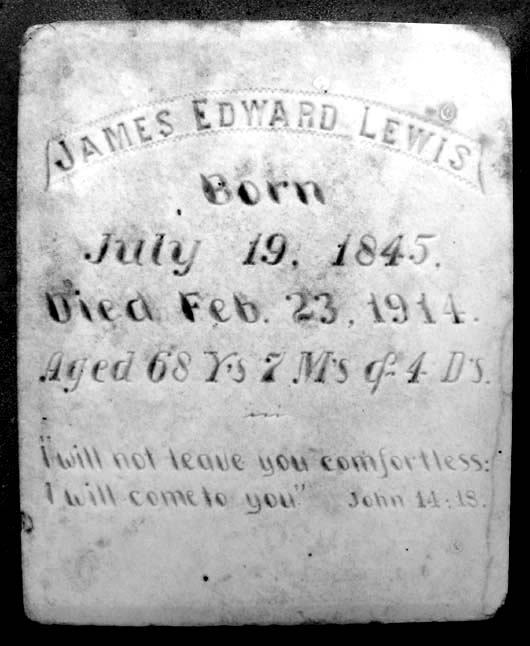 JAMES EDWARD LEWIS
Born
July 19, 1845.
Died Feb. 23, 1914.
Aged 68 Y's 7 M's & 4 D's.
"I will not leave you comfortless:
I will come to you" John 14:18.